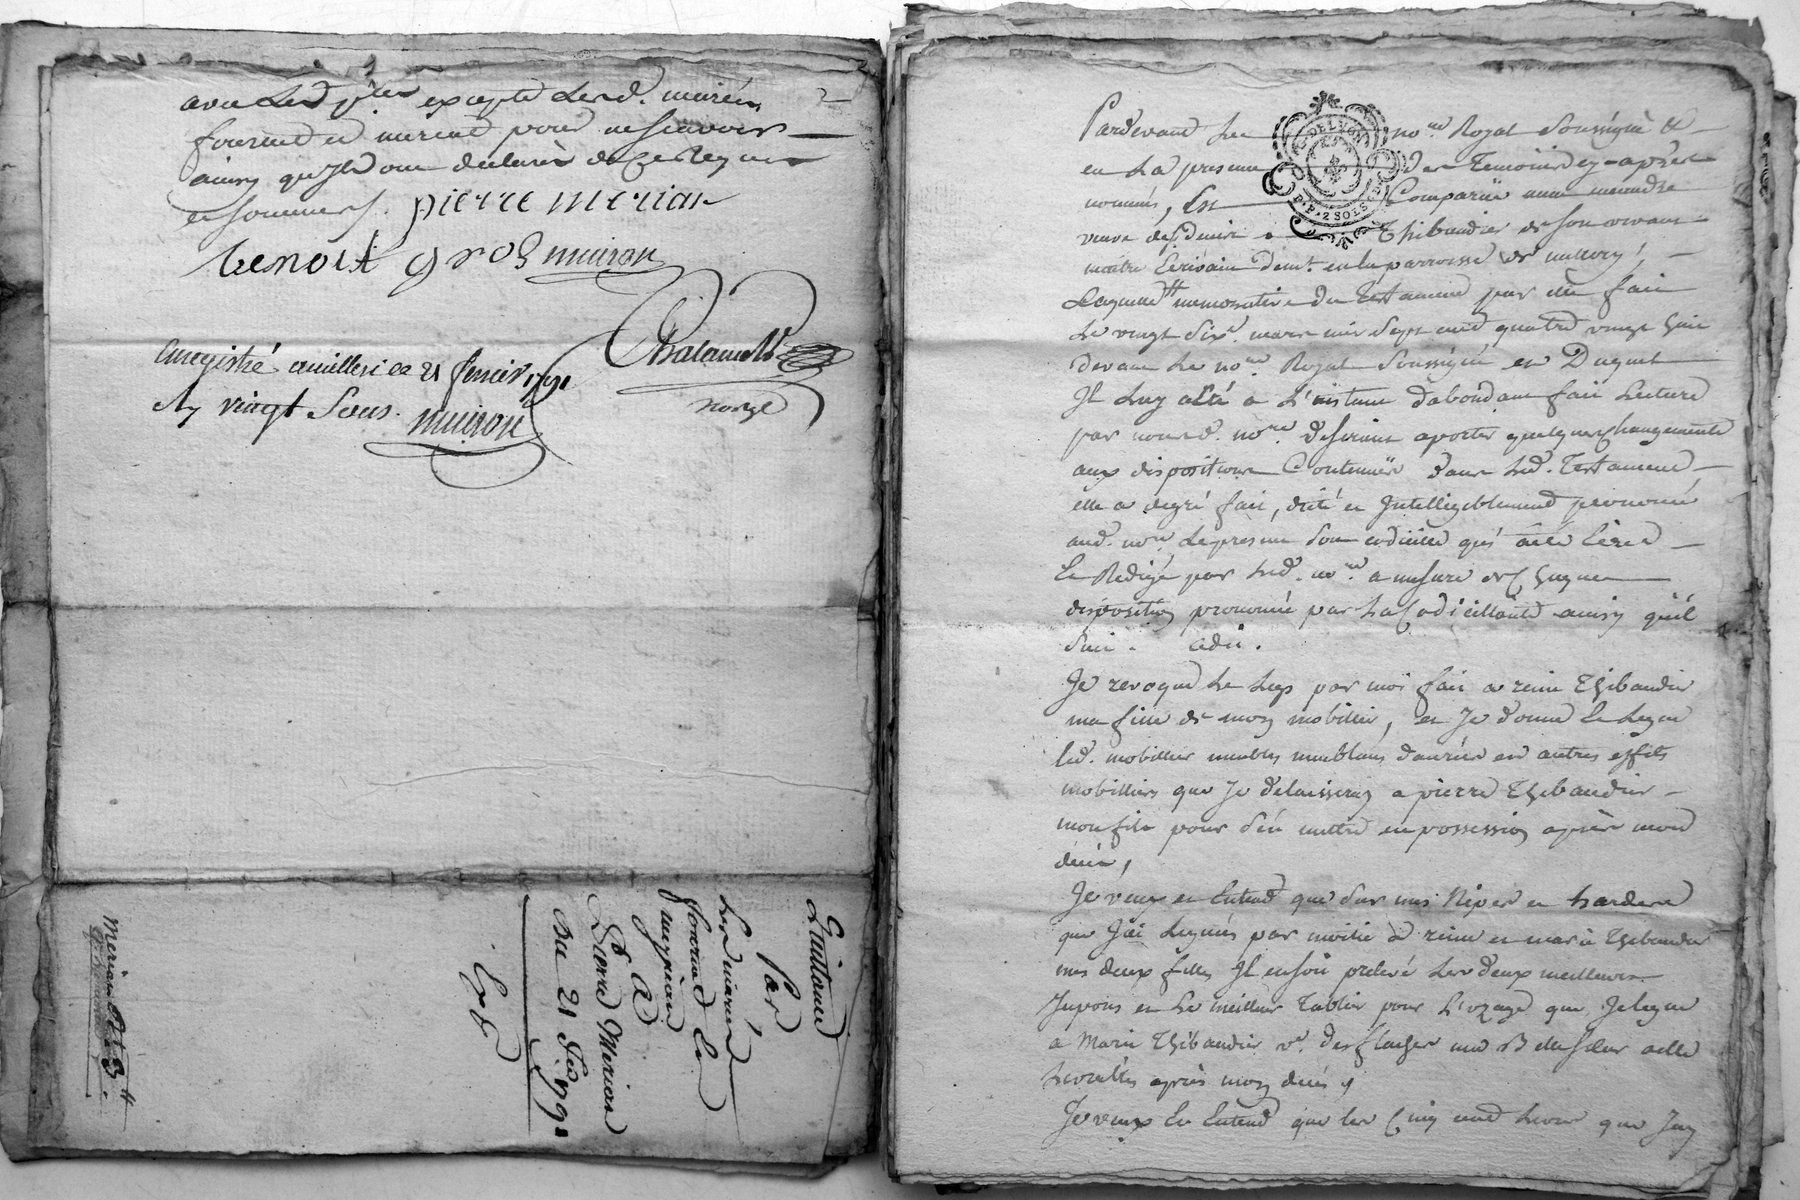 avec Lesd. pties excepté Lesd. mariés
fournend et murend pour ne scavoir
ainsy qu'Ils ont declarés de ce Requis
et sommés.
pierre merian
benoit gros
muiron
Chalamel
norye
Enregistré 21 fevrier 1791
vingt Sous. muiron
Quittance
Par
Les mariés
fournend et
A
Pierre Merian
Du 21 Fev 1791
Merian
Pardevant Le no.re Royal Soussigné et
en La presence des Temoins cy-après
nommés, Est Comparüe
veuve de Thibaudier de Son vivant
maitre Ecrivain demt. en la parroisse de
Laquelle memorative du Testament par elle fait
Le vingt Six.e mars mil Sept cend quatre vingt huit
devant Le no.re Royal Soussigné et Duguet
Il Luy a été a L'instant d'abondant fait Lecture
par nousd. no.re desirant aporter quelques changements
aux dispositions Contenües dans Led. Testament
elle a degré fait, dicté et Intelligiblement prononcé
aud. no.re Le present Son codicille qui a été Ecrit
et Redigé par Led. no.re a mesure de Chaque
disposition prononcée par La Codicillante ainsy qu'il
Suit. a dit.
Je revoque Le Legs par moi fait a reine Thibaudier
ma fille de mon mobilier, et Je donne et Legue
led. mobilier meubles meublants danrées et autres effets
mobilliers que Je delaisseray a pierre Thibaudier
mon fils pour s'en mettre en possession après mon
decès,
Je veux et Entend que Sur mes Nipes et hardes
que J'ai Legués par moitié a reine et marie Thibaudier
mes deux filles Il en soit prelevé Les deux meilleurs
Jupons et Le meilleur Tablier pour L'uzage que Je legue
a Marie Thibaudier v.e ma Belle Sœur a elle
Livrables après mon decès,
Je veux Et Entend que les Cinq cend Livres que Jay